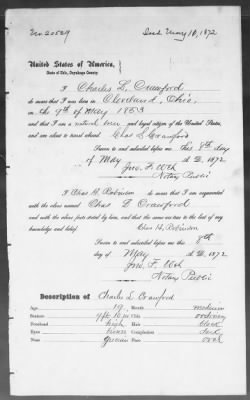 No. 20529
Issd May 10, 1872
United States of America,
State of Ohio, Cuyahoga County.
I Charles L. Crawford
do swear that I was born in Cleveland, Ohio,
on the 9th of May 1853
and that I am a natural born and loyal citizen of the United States,
and am about to travel abroad. Chas L Crawford
Sworn to and subscribed before me this 8th day
of May A.D. 1872.
Jno. F.
Notary Public
I Chas H. Robinson do swear that I am acquainted
with the above named Chas L Crawford
and with the above facts stated by him, and that the same are true to the best of my
knowledge and belief. Chas H. Robinson
Sworn to and subscribed before me this 8th
day of May A.D. 1872.
Jno. F.
Notary Public
Description of Charles L Crawford
Age 19 Mouth medium
Stature Chin ordinary
Forehead high Hair black
Eyes Complexion dark
Nose Face oval